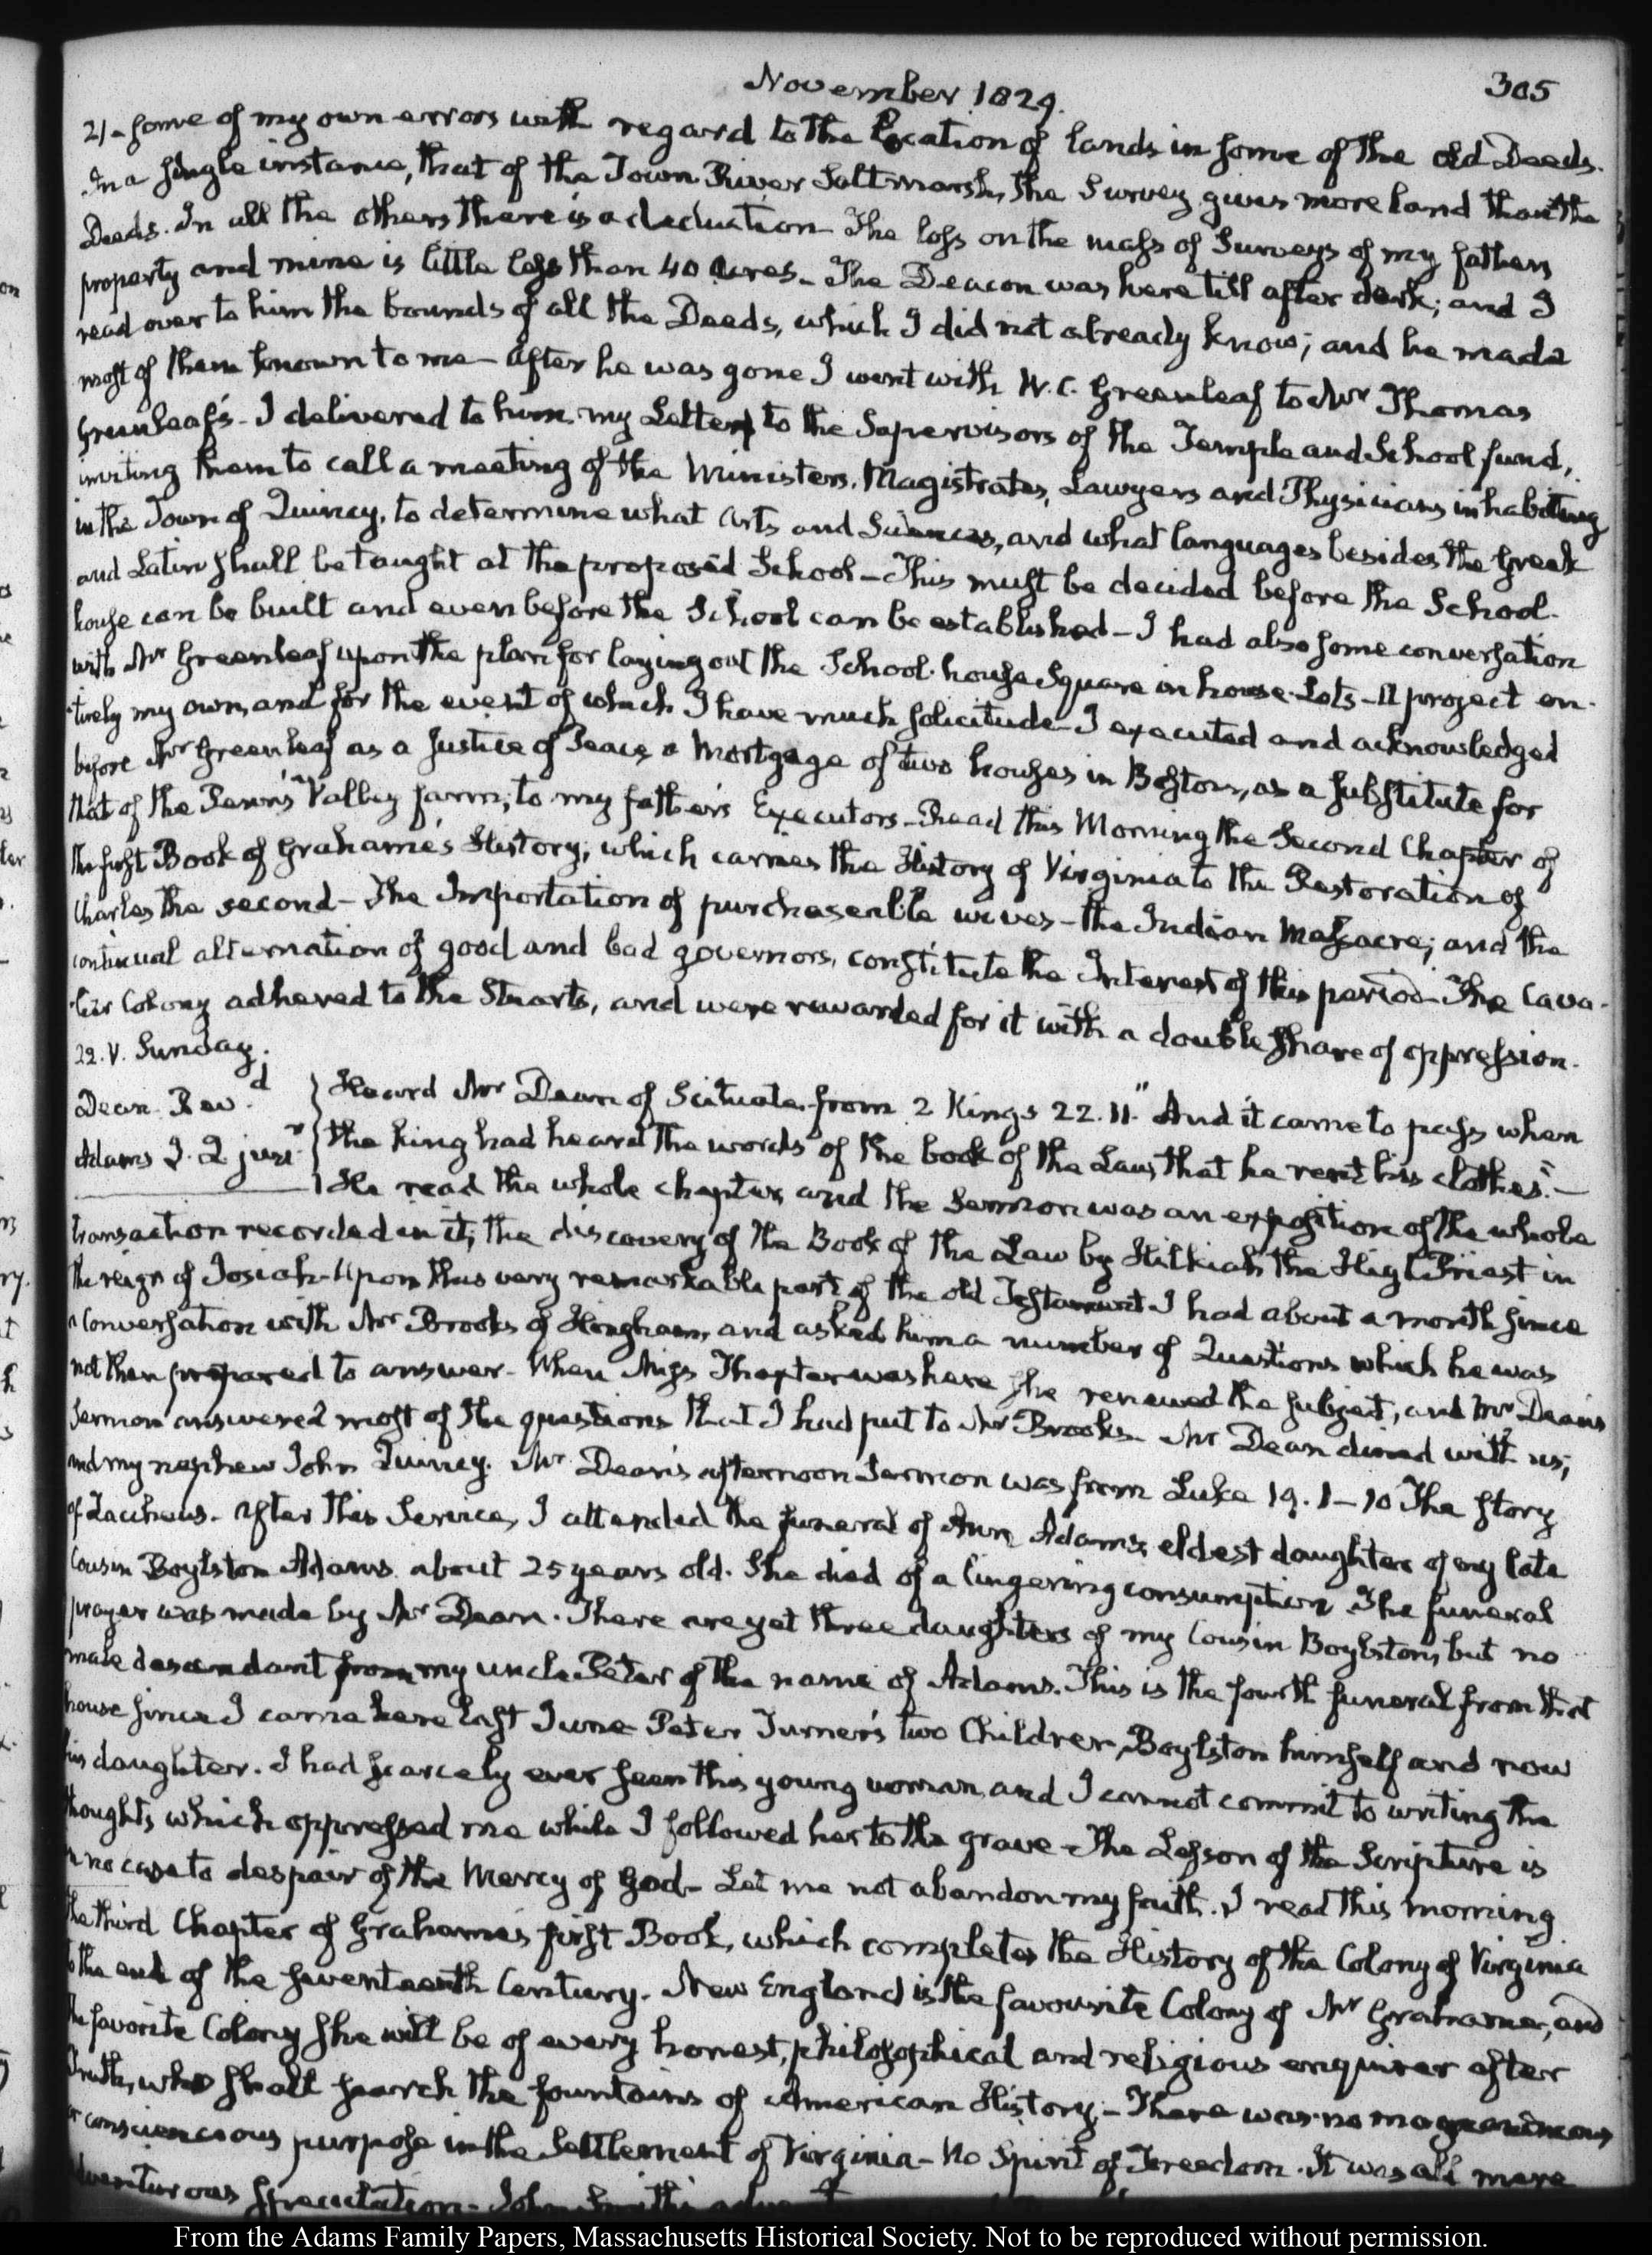 November 1829.
305
21 - some of my own errors with regard to the Location of lands in some of the old Deeds.
In a single instance, that of the Town River Salt marsh, the Survey gives more land than the
Deeds. In all the others there is a deduction - The loss on the mass of Surveys of my fathers
property and mine is little less than 40 Acres - The Deacon was here till after dark; and I
read over to him the bounds of all the Deeds, which I did not already know; and he made
most of them known to me - After he was gone I went with W. C. Greenleaf to Mr Thomas
Greenleaf's - I delivered to him my Letter to the Supervisors of the Temple and School fund,
inviting them to call a meeting of the Ministers, Magistrates, Lawyers and Physicians inhabiting
in the Town of Quincy, to determine what Arts and Sciences, and what languages besides the Greek
and Latin shall be taught at the proposed School - This must be decided before the School-
house can be built and even before the School can be established - I had also some conversation
with Mr Greenleaf upon the plan for laying out the School-house Square in house-Lots - A project en-
-tirely my own, and for the event of which I have much solicitude - I executed and acknowledged
before Mr Greenleaf as a Justice of Peace a Mortgage of two houses in Boston, as a substitute for
that of the Penn's Valley farm, to my father's Executors - Read this Morning the Second Chapter of
the first Book of Grahame's History; which carries the History of Virginia to the Restoration of
Charles the second - The Importation of purchaseable wives - the Indian Massacre; and the
continual alternation of good and bad governors, constitute the Interest of this period - The Cava-
-lier Colony adhered to the Stuarts, and were rewarded for it with a double share of oppression.
22. V. Sunday.
Dean Revd
Adams J. Q junr
Heard Mr Dean of Scituate from 2 Kings 22. 11. "And it came to pass when
the king had heard the words of the book of the Law, that he rent his clothes." -
He read the whole chapter, and the Sermon was an exposition of the whole
transaction recorded in it; the discovery of the Book of the Law by Hilkiah the High Priest in
the reign of Josiah - Upon this very remarkable part of the old Testament I had about a month since
a Conversation with Mr Brooks of Hingham, and asked him a number of Questions which he was
not then prepared to answer - When Miss Thaxter was here she renewed the subject, and Mr Dean's
Sermon answered most of the questions that I had put to Mr Brooks - Mr Dean dined with us;
and my nephew John Quincy. Mr Dean's afternoon Sermon was from Luke 19. 1-10 The story
of Zaccheus - After this Service, I attended the funeral of Ann Adams, eldest daughter of my late
Cousin Boylston Adams about 25 years old. She died of a lingering consumption. The funeral
prayer was made by Mr Dean. There are yet three daughters of my Cousin Boylston, but no
male descendant from my uncle Peter of the name of Adams. This is the fourth funeral from that
house since I came here last June - Peter Turner's two Children, Boylston himself and now
his daughter. I had scarcely ever seen this young woman, and I cannot commit to writing the
thoughts which oppressed me while I followed her to the grave - The Lesson of the Scripture is
in no case to despair of the Mercy of God - Let me not abandon my faith. I read this morning
the third Chapter of Grahame's first Book, which completes the History of the Colony of Virginia
to the end of the seventeenth Century. New England is the favourite Colony of Mr Grahame, and
the favorite Colony she will be of every honest, philosophical and religious enquirer after
Truth, who shall search the fountains of American History - There was no magnanimous
or conscientious purpose in the Settlement of Virginia - No Spirit of Freedom. It was all mere
adventurous speculation - John Smith's
From the Adams Family Papers, Massachusetts Historical Society. Not to be reproduced without permission.